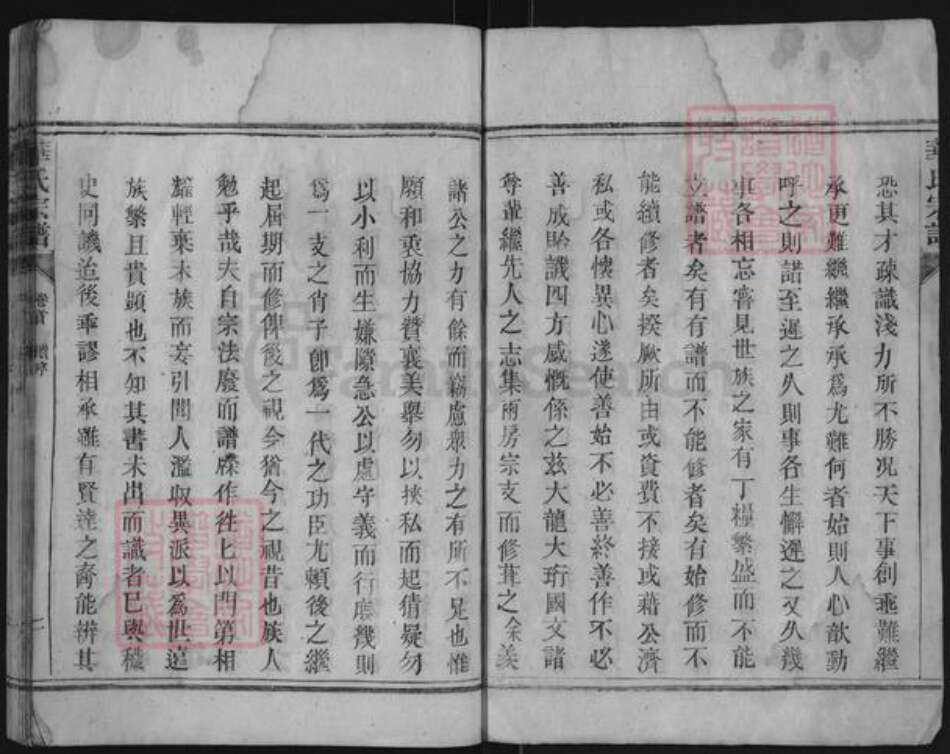 恐其才疎識淺力所不勝况天下事創垂難繼
承更難繼繼承承爲尤難何者始則人心歆動
呼之則諾至遲之久則事各生懈遲之又久幾
事各相忘嘗見世族之家有丁糧繁盛而不能
立譜者矣有有譜而不能修者矣有始修而不
能續修者矣揆厥所由或資費不接或藉公濟
私或各懷異心遂使善始不必善終善作不必
善成貽譏四方感慨係之茲大龍大珩國文諸
尊輩繼先人之志集兩房宗支而修葺之余羨
諸公之力有餘而竊慮衆力之有所不足也惟
願和衷協力贊襄美舉勿以挾私而起猜疑勿
以小利而生嫌隙急公以處守義而行庶幾則
爲一支之肖子卽爲一代之功臣尤賴後之繼
起屆期而修俾後之視今猶今之視昔也族人
勉乎哉夫自宗法廢而譜牒作徃徃以門第相
耀輕棄本族而妄引聞人濫収異派以爲世逌
族繁且貴顯也不知其書未出而識者已與穢
史同譏迨後乖謬相承雖有賢達之裔能辨其
華氏宗譜
卷首
續序